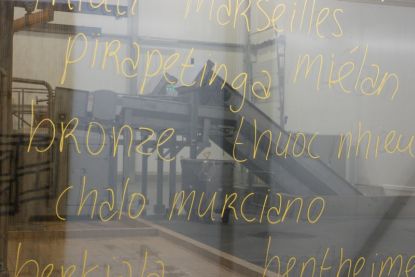 marseilles
pirapetinga miélan
bronze thuoc nhieu
chalo murciano
bentheim